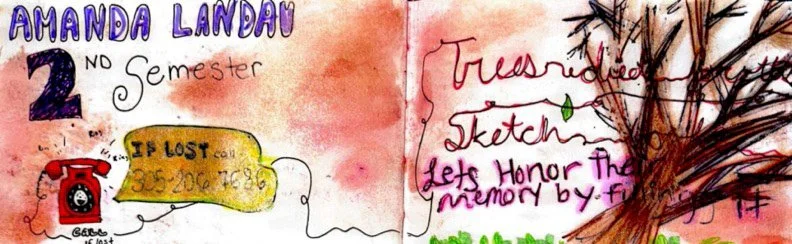 AMANDA LANDAU
2ND Semester
IF LOST call
305-206 7686
if lost
Trees
Sketch
Lets Honor The
memory by